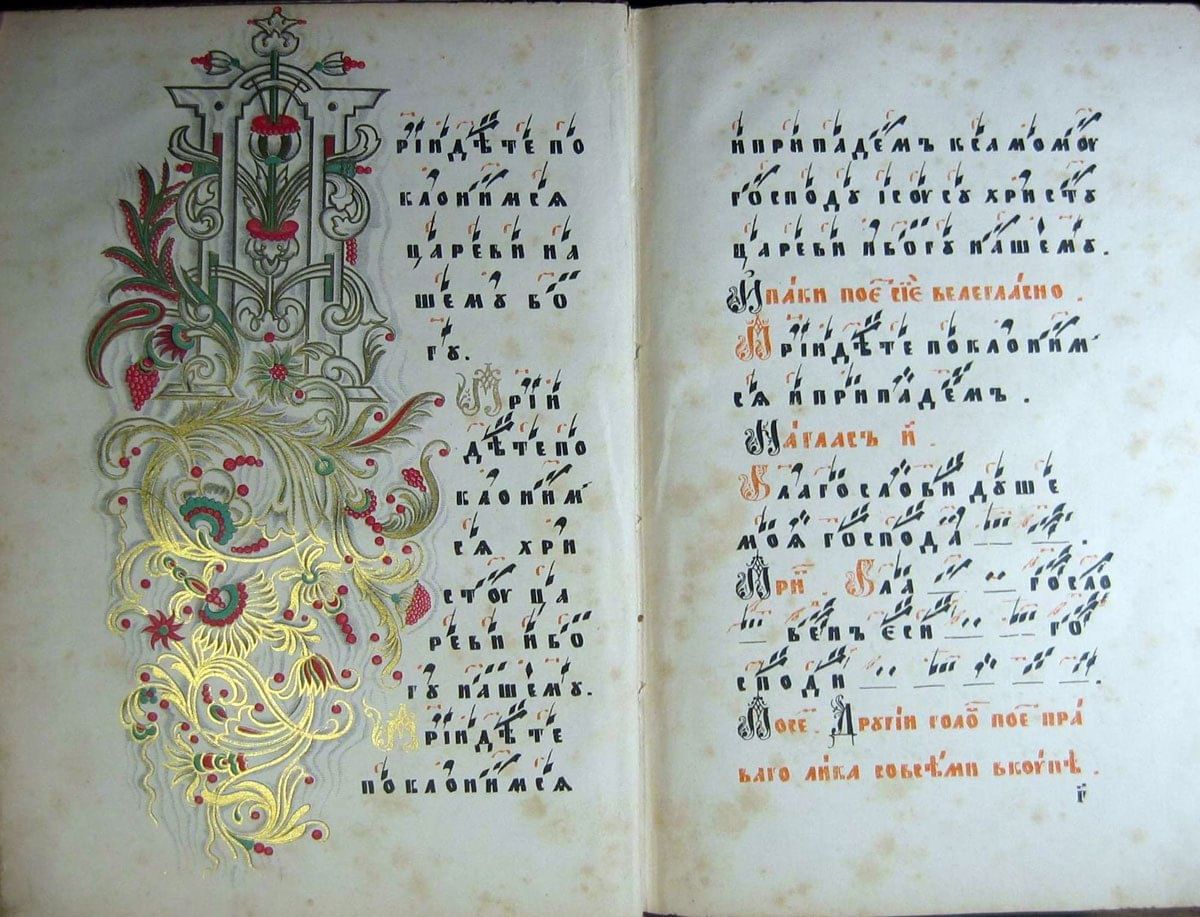 РІИДѢТЕ ПО
КЛОНИМСЯ
ЦАРЕВИ НА
ШЕМУ БО
ГУ.
ПРІИ
ДѢТЕ ПО
КЛОНИМ
СЯ ХРИ
СТОУ ЦА
РЕВИ И БО
ГУ НАШЕМУ.
ПРІИДѢТЕ
ПОКЛОНИМСЯ
И ПРИПАДЕМЪ К САМОМОУ
ГОСПОДУ ІСОУСУ ХРИСТУ
ЦАРЕВИ И БОГУ НАШЕМУ.
И҆ па́ки пое҇ сїѐ велегла́сно.
ПРІИДѢТЕ ПОКЛОНИМ
СЯ И ПРИПАДЕМЪ.
На́ гласъ и҃.
БЛАГОСЛОВИ ДУШЕ
МОЯ ГОСПОДА
При҇. БЛА ГОСЛО
ВЕНЪ ЕСИ ГО
СПОДИ
Посе҇. Другїи голо҇ пое҇ пра́
ваго ли́ка со всѣ́ми вкоу́пѣ.